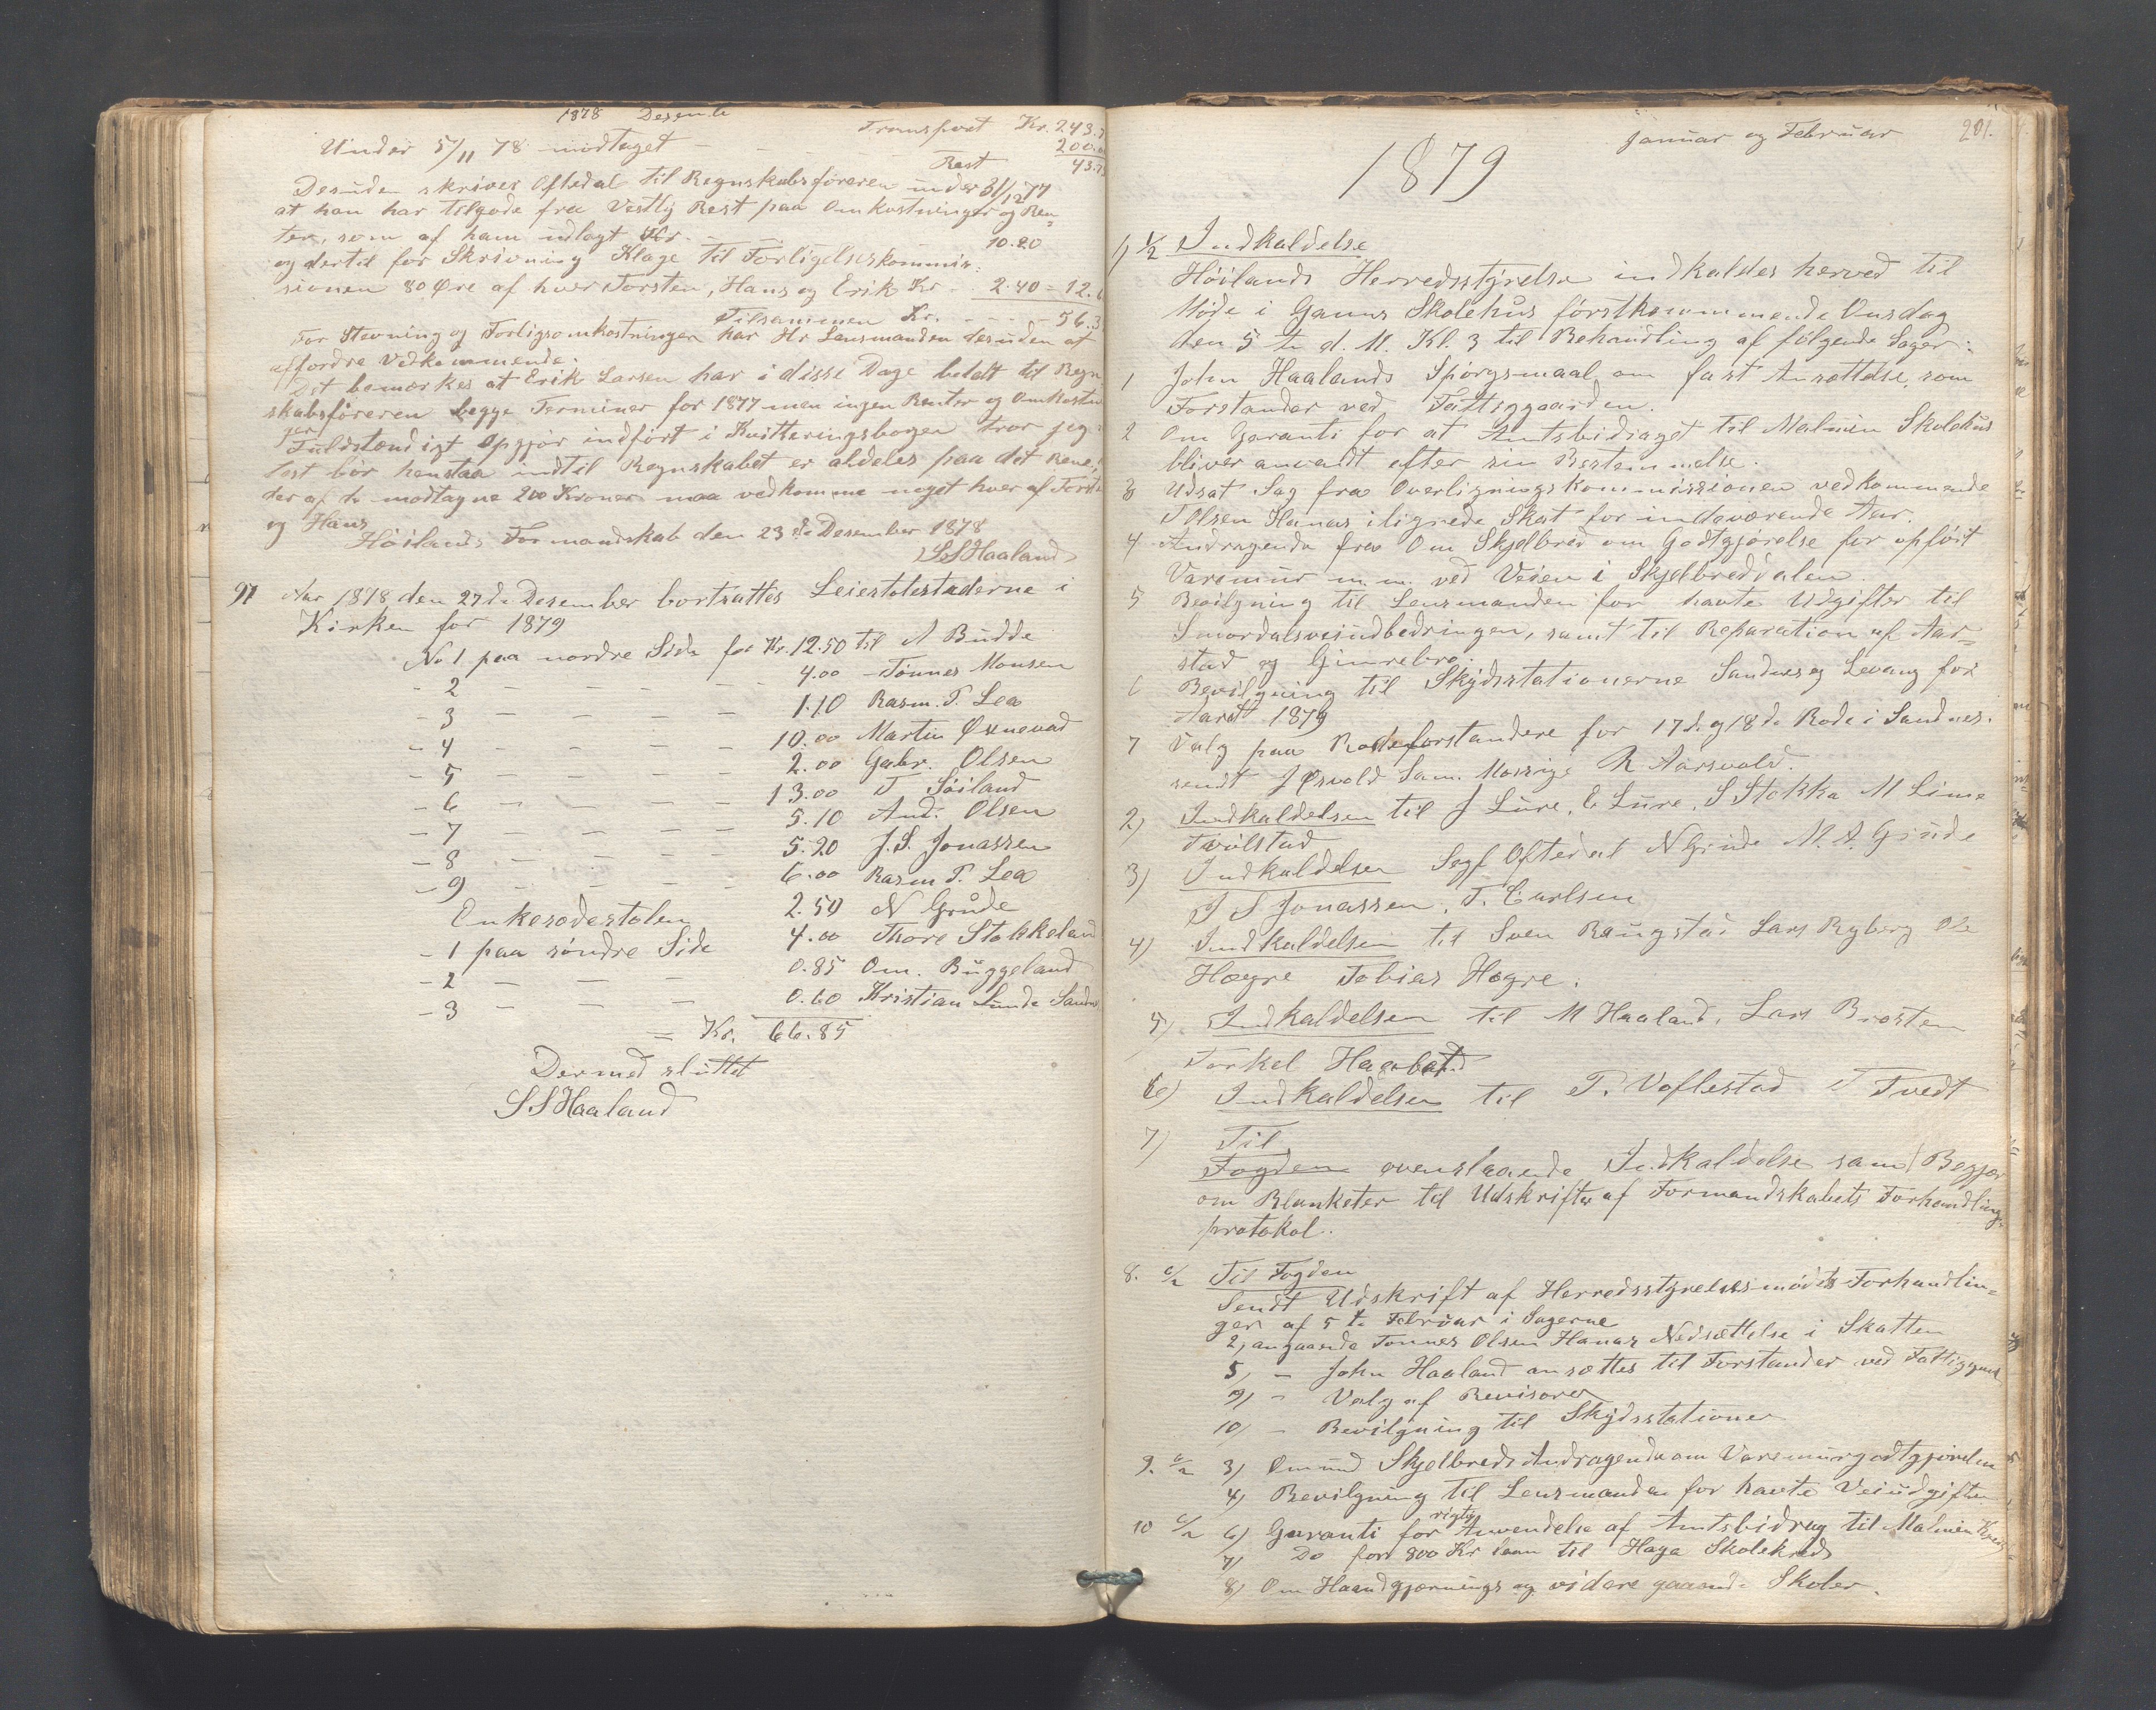 1878 Desembr
Transport Kr. 243.
Under 5/11 78 modtaget - - - 200.
Rest 43.
Desuden skriver Oftedal til Regnskabsføreren under 31/12 77
at han har tilgode fra Vestly Rest paa Omkostninger og Ren=
ter, som af ham udlagt Kr. - - 10.20
og dertil for Skrivning Klage til Forligelseskommis:
sionen 80 Øre af hver Torsten, Hans og Erik Kr - 2.40 = 12.6
Tilsammen Kr. - - - 56.3
For Stevning og Forligsomkostninger har Hr Lensmanden desuden at
affordre Vedkommende.
Det bemærkes at Erik Larsen har i disse Dage betalt til Regn
skabsføreren begge Terminer for 1877 men ingen Renter og Omkostn
ger
Fuldstændigt Opgjør indført i Kvitteringsbogen tror jeg
bør henstaa indtil Regnskabet er aldeles paa det Rene,
der af de modtagne 200 Kroner maa vedkomme noget hver af Torst
og Hans
Høilands Formandskab den 23de Desember 1878
S S Haaland
91 Aar 1878 den 27de Desember bortsattes Leiestolestaderne i
Kirken for 1879
No 1 paa nordre Side for Kr. 12.50 til A Budde
- 2 - - - - - 4.00 - Tønnes Monsen
- 3 - - - - - 1.10 Rasm. T. Lea
- 4 - - - - - 10.00 Martin Øxnevad
- 5 - - - - - 2.00 Gabr. Olsen
- 6 - - - - - 13.00 T Søiland
- 7 - - - - - 5.10 And. Olsen
- 8 - - - - - 5.20 J. S. Jonassen
- 9 - - - - - 6.00 Rasm T. Lea
Enkesædestolen 2.50 N Grude
- 1 paa søndre Side 4.00 Thore Stokkeland
- 2 - - - 0.85 Om. Buggeland
- 3 - - - 0.60 Kristian Lunde Sandn
= Kr. 66.85
Dermed sluttet
S S Haaland
Januar og Februar 201.
1879
1) 1/2 Indkaldelse
Høilands Herredsstyrelse indkaldes herved til
Møde i Ganns Skolehus førstkommmende Onsdag
den 5te d. M. Kl. 3 til Behandling af følgende Sager:
1 John Haalands Spørgsmaal om fast Ansættelse, som
Forstander ved Fattiggaarden.
2 Om Garanti for at Amtsbidraget til Malmin Skolehus
bliver anvendt efter sin Bestemmelse.
3 Udsat Sag fra Overligningskommissionen vedkommende
T Olsen Hanas ilignede Skat for indeværende Aar.
4 Andragende fra Om Skjelbred om Godtgjørelse for opført
Varemur m.m. ved Veien i Skjelbreddalen.
5 Bevilgning til Lensmanden for havte Udgifter til
Smordalsveiudbedringen, samt til Reparation af Aar=
stad og Gimrebro.
6 Bevilgning til Skydsstationerne Sandnes og Levang for
Aaret 1879
7 Valg paa Rodeforstandere for 17de og 18de Rode i Sandnes.
sendt J Øsvold Sam. Mossige R Aarsvold.
2) Indkaldelsen til J Lure, E Lure, S Stokka M Lima
Tvilstad
3) Indkaldelsen Sagf Oftedal N Grude M. A. Grude
J S Jonassen, T. Carlsen
4) Indkaldelsen til Sven Raugstad Lars Ryberg Ole
Høgre Tobias Høgre.
5) Indkaldelsen til M Haaland, Lars Brøsten
Torkel Haabet
6) Indkaldelsen til T. Voflestad T Tvedt
7) Til
Fogden ovenstaaende Indkaldelse samt Begjær
om Blanketer til Udskrifter af Formandskabets Forhandlings=
protokol.
8. 6/2 Til Fogden
Sendt Udskrift af Herredsstyrelsesmødets Forhandlin=
ger af 5te Februar i Sagerne
2, angaaende Tønnes Olsen Hanas Nedsættelse i Skatten
5, - John Haaland ansættes til Forstander ved Fattiggaard
9) - Valg af Revisorer
10) - Bevilgning til Skydsstationer
9. 6/2 3) Omund Skjelbreds Andragende om Varemurgodtgjørelse
4) Bevilgning til Lensmanden for havte Veiudgifter
10 6/2 6) Garanti for rigtig Anvendelse af Amtsbidrag til Malmin Kreds
7) Do for 800 Kr Laan til Haga Skolekreds
8) Om Haandgjernings og videre gaaende Skoler.